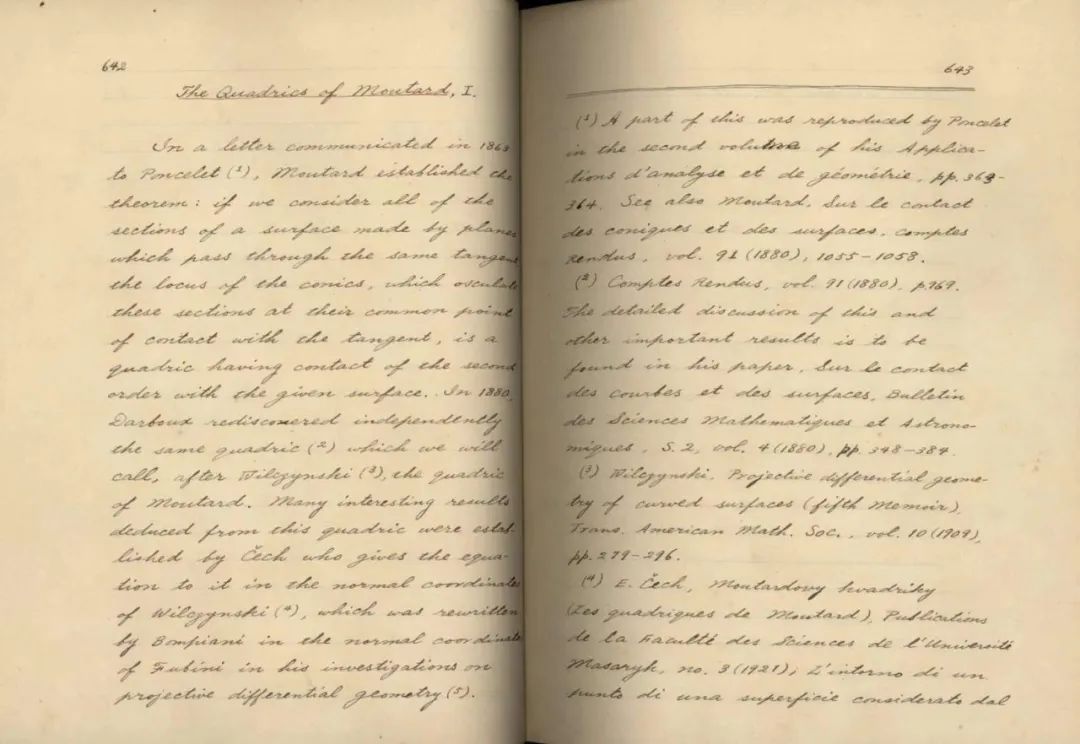 642
The Quadrics of Moutard, I.
In a letter communicated in 1863
to Poncelet (1), Moutard established the
theorem: if we consider all of the
sections of a surface made by planes
which pass through the same tangent
the locus of the conics, which osculate
these sections at their common point
of contact with the tangent, is a
quadric having contact of the second
order with the given surface. In 1880,
Darboux rediscovered independently
the same quadric (2) which we will
call, after Wilczynski (3), the quadric
of Moutard. Many interesting results
deduced from this quadric were estab-
lished by Čech who gives the equa-
tion to it in the normal coordinates
of Wilczynski (4), which was rewritten
by Bompiani in the normal coordinate
of Fubini in his investigations on
projective differential geometry (5).
643
(1) A part of this was reproduced by Poncelet
in the second volume of his Applica-
tions d'analyse et de géometrie, pp. 363-
364. See also Moutard, Sur le contact
des coniques et des surfaces, Comptes
Rendus, vol. 91 (1880), 1055-1058.
(2) Comptes Rendus, vol. 91 (1880), p.969.
The detailed discussion of this and
other important results is to be
found in his paper, Sur le contact
des courbes et des surfaces, Bulletin
des Sciences Mathematiques et Astrono-
miques, S. 2, vol. 4 (1880), pp. 348-384.
(3) Wilczynski, Projective differential geome-
try of curved surfaces (fifth Memoir),
Trans. American Math. Soc., vol. 10 (1909),
pp. 279-296.
(4) E. Čech, Moutardovy kvadriky
(Les quadriques de Moutard), Publications
de la Faculté des Sciences de l'Université
Masaryk, no. 3 (1921); L'intorno di un
punto di una superficie considerato dal